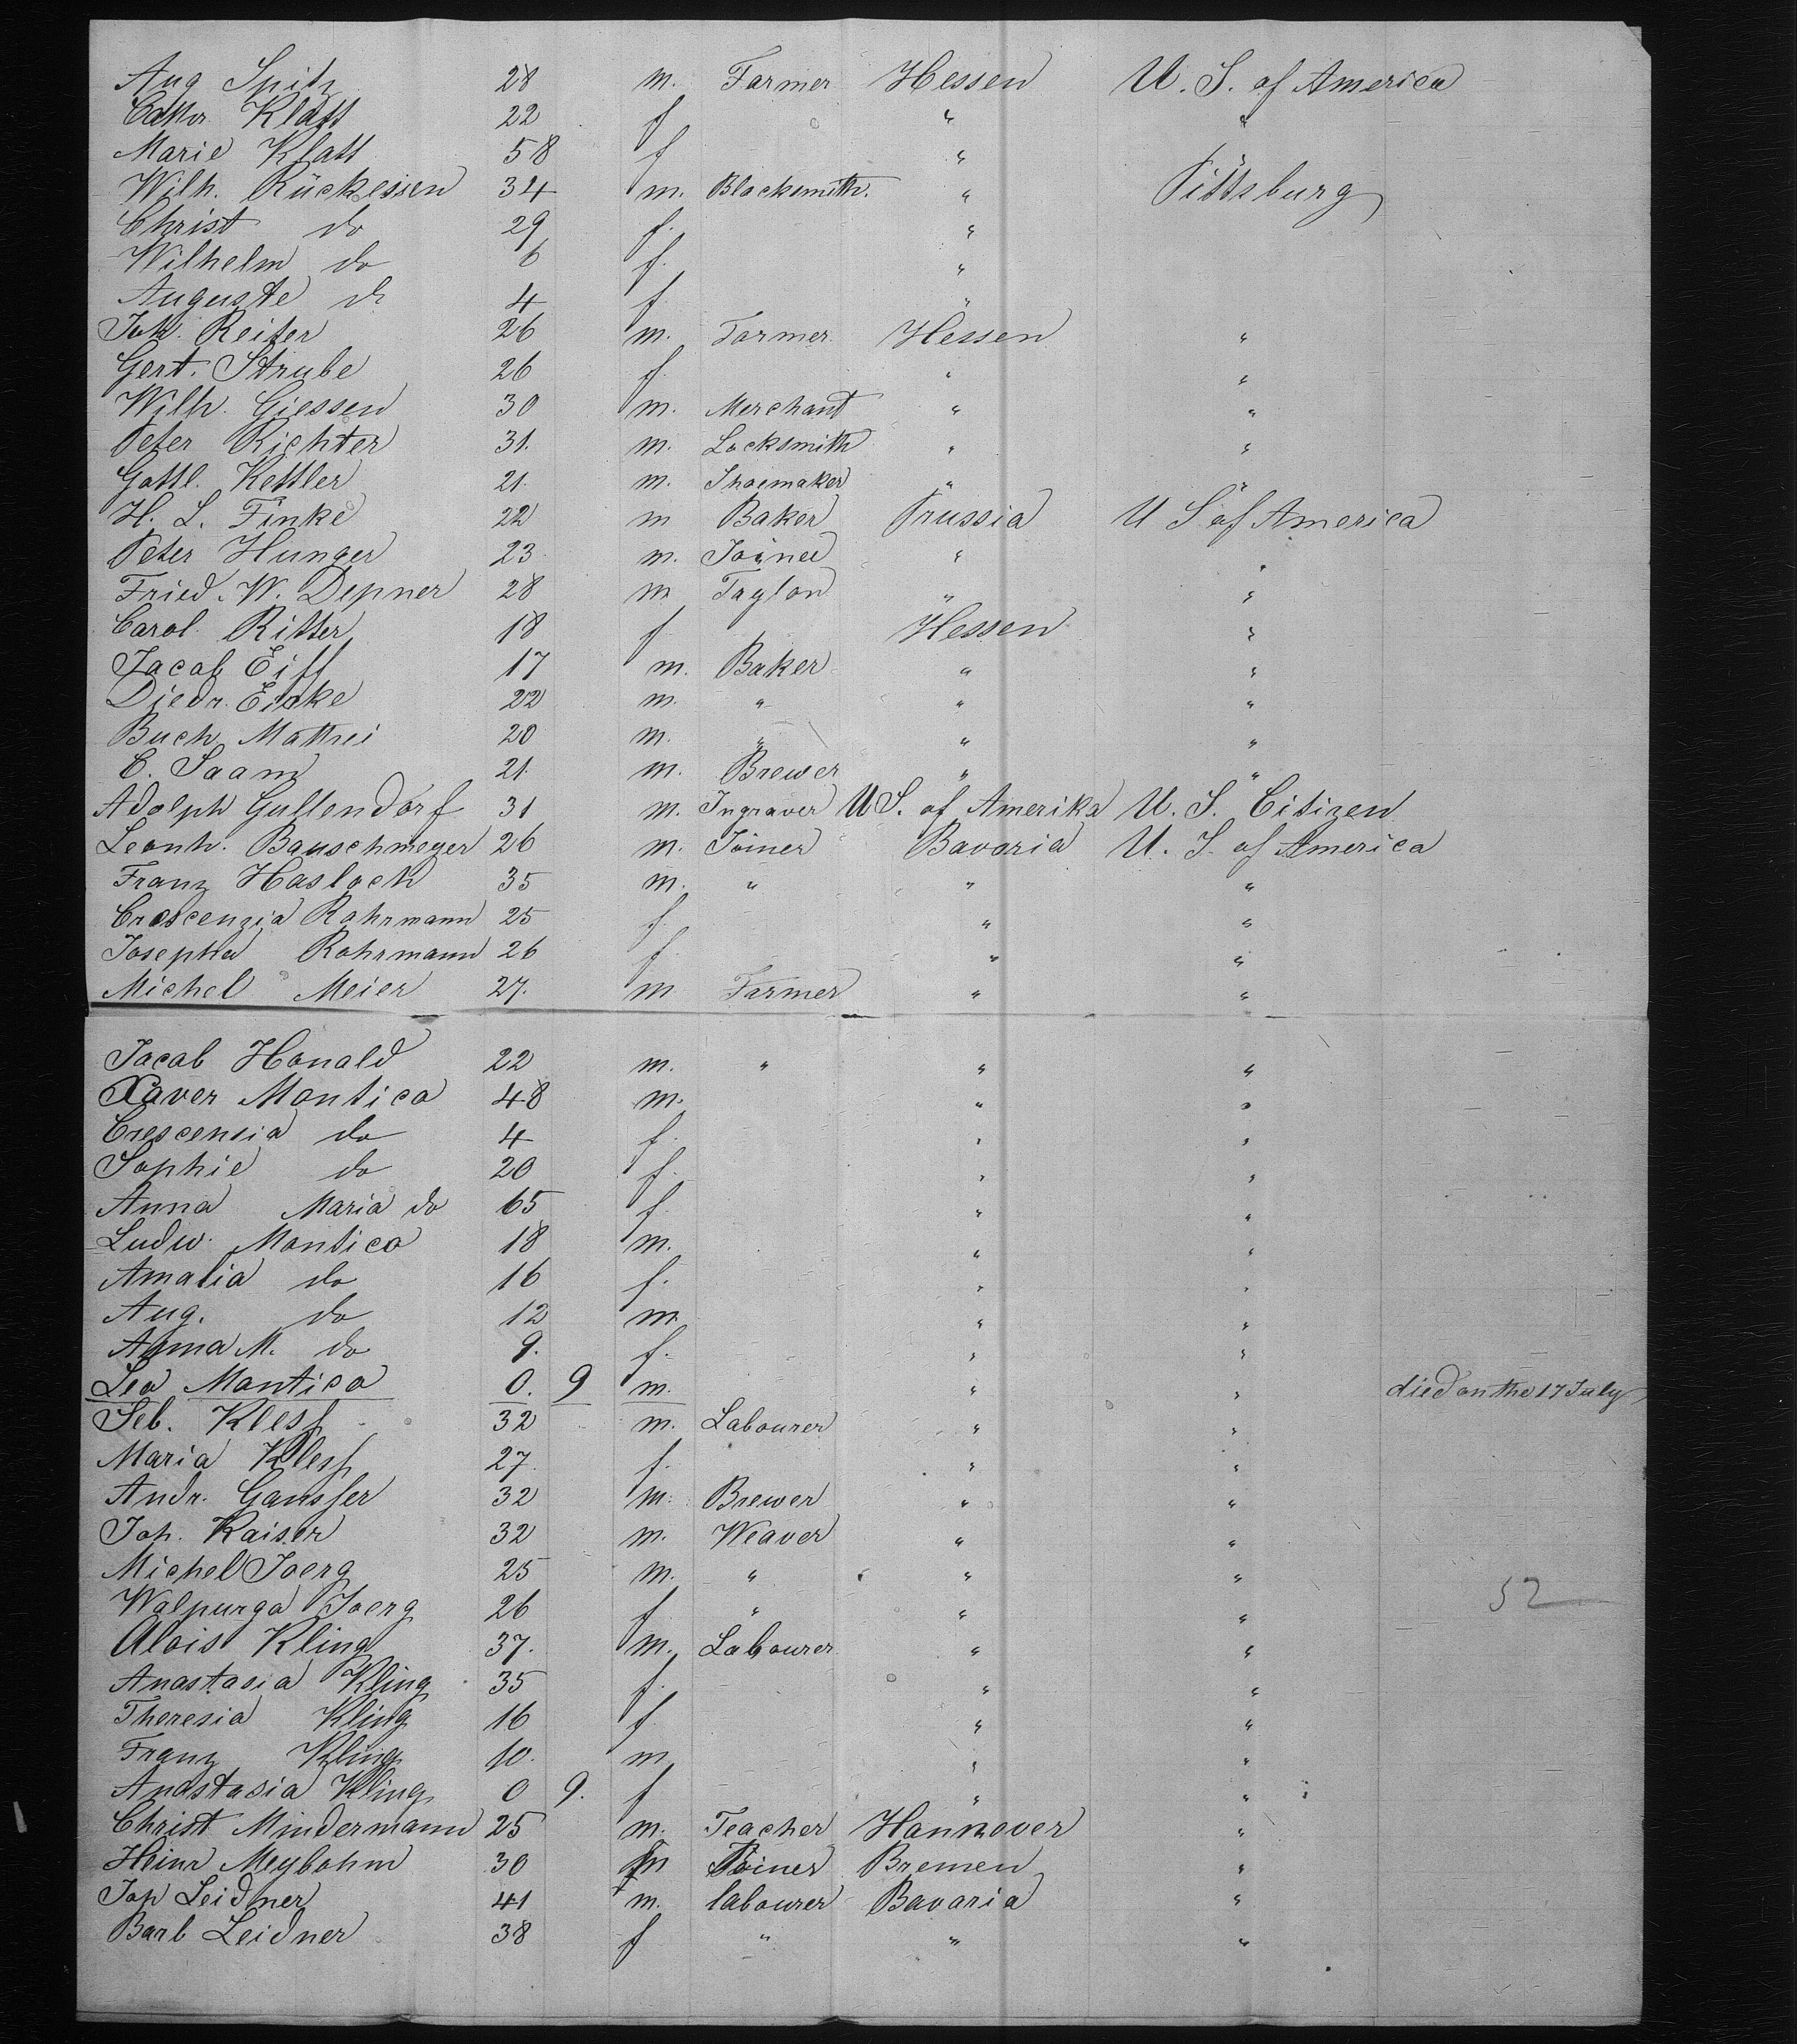 Aug Spitz 28 m. Farmer Hessen U. S. of America
Cathr. Klatt 22 f " "
Marie Klatt 58 f "
Wilh. Rückessen 34 m. Blacksmith. " Pittsburg
Christ do 29 f. "
Wilhelm do 6 f. "
Auguste do 4 f "
Joh. Reiter 26 m. Farmer Hessen "
Gert. Strube 26 f. " "
Wilh. Giessen 30 m. Merchant " "
Peter Richter 31. m. Locksmith " "
Gottl. Kettler 21. m. Shoemaker " "
H. L. Finke 22 m Baker Prussia U S of America
Peter Hunger 23 m. " "
Fried. W. Depner 28 m Taylor " "
Carol. Ritter 18 f Hessen "
Jacob Eiff 17 m. Baker " "
Diedr. 22 m. " " "
Buch Matthei 20 m. " " "
C. Saam 21. m. Brewer " "
Adolph Gullendorf 31 m. Ingraver U S. of Amerika U. S. Citizen
Leonh. Bauschmeyer 26 m. Joiner Bavaria U. S. of America
Franz Haslach 35 m. " " "
Crescenzia Rohrmann 25 f. " "
Josepha Rohrmann 26 f " "
Michel Meier 27. m Farmer " "
Jacob Honald 22 m. " " "
Xaver Montica 48 m. " "
Crescensia do 4 f. " "
Sophie do 20 f. " "
Anna Maria do 65 f. " "
Ludw. Montica 18 m. " "
Amalia do 16 f. " "
Aug. do 12 m. " "
Anna M. do 9. f. " "
Leo Montica 0. 9 m. " " died on the 17 July
Seb. Kless 32 m. Labourer " "
Maria Kless 27. f. " "
Andr. Gansser 32 m. Brewer " "
Joh. Kaiser 32 m. Weaver " "
Michel Joerg 25 m. " " "
Walpurga Joerg 26 f " " "
Alois Kling 37. m. Labourer " "
52
Anastasia Kling 35 f. " "
Theresia Kling 16 f " "
Franz Kling 10. m " "
Anastasia Kling 0 9. f " "
Christ Mindermann 25 m. Teacher Hannover "
Heinr Meybohm 30 m Joiner Bremen "
Joh Leidner 41 m. labourer Bavaria "
Barb Leidner 38 f " " "